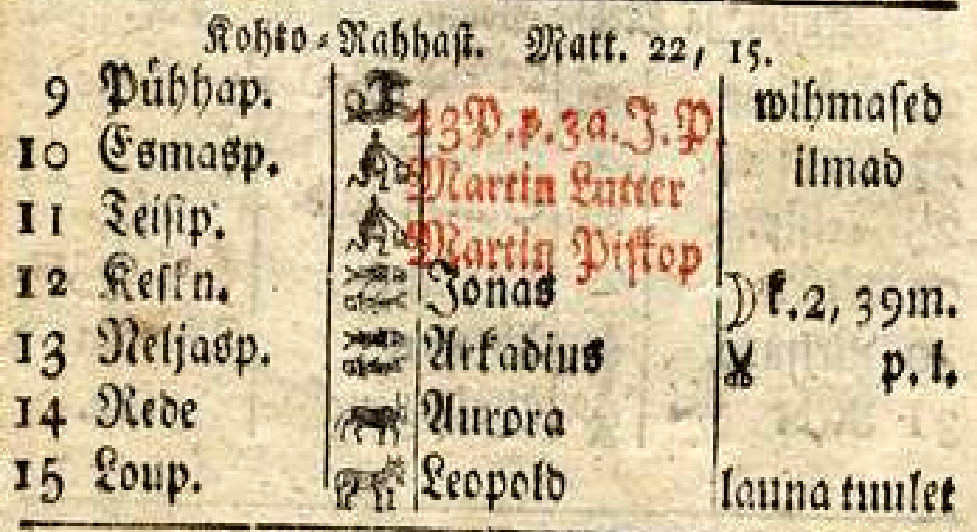 Kohto-Rahhast. Matt. 22, 15.
9 Pühhap. 23 P. p. 3a. J. P. wihmased
10 Esmasp. Martin Lutter ilmad
11 Teisip. Martin Piskop
12 Keskn. Jonas k. 2, 39m.
13 Neljasp. Arkadius p. l.
14 Rede Aurora
15 Loup. Leopold launa tuulet